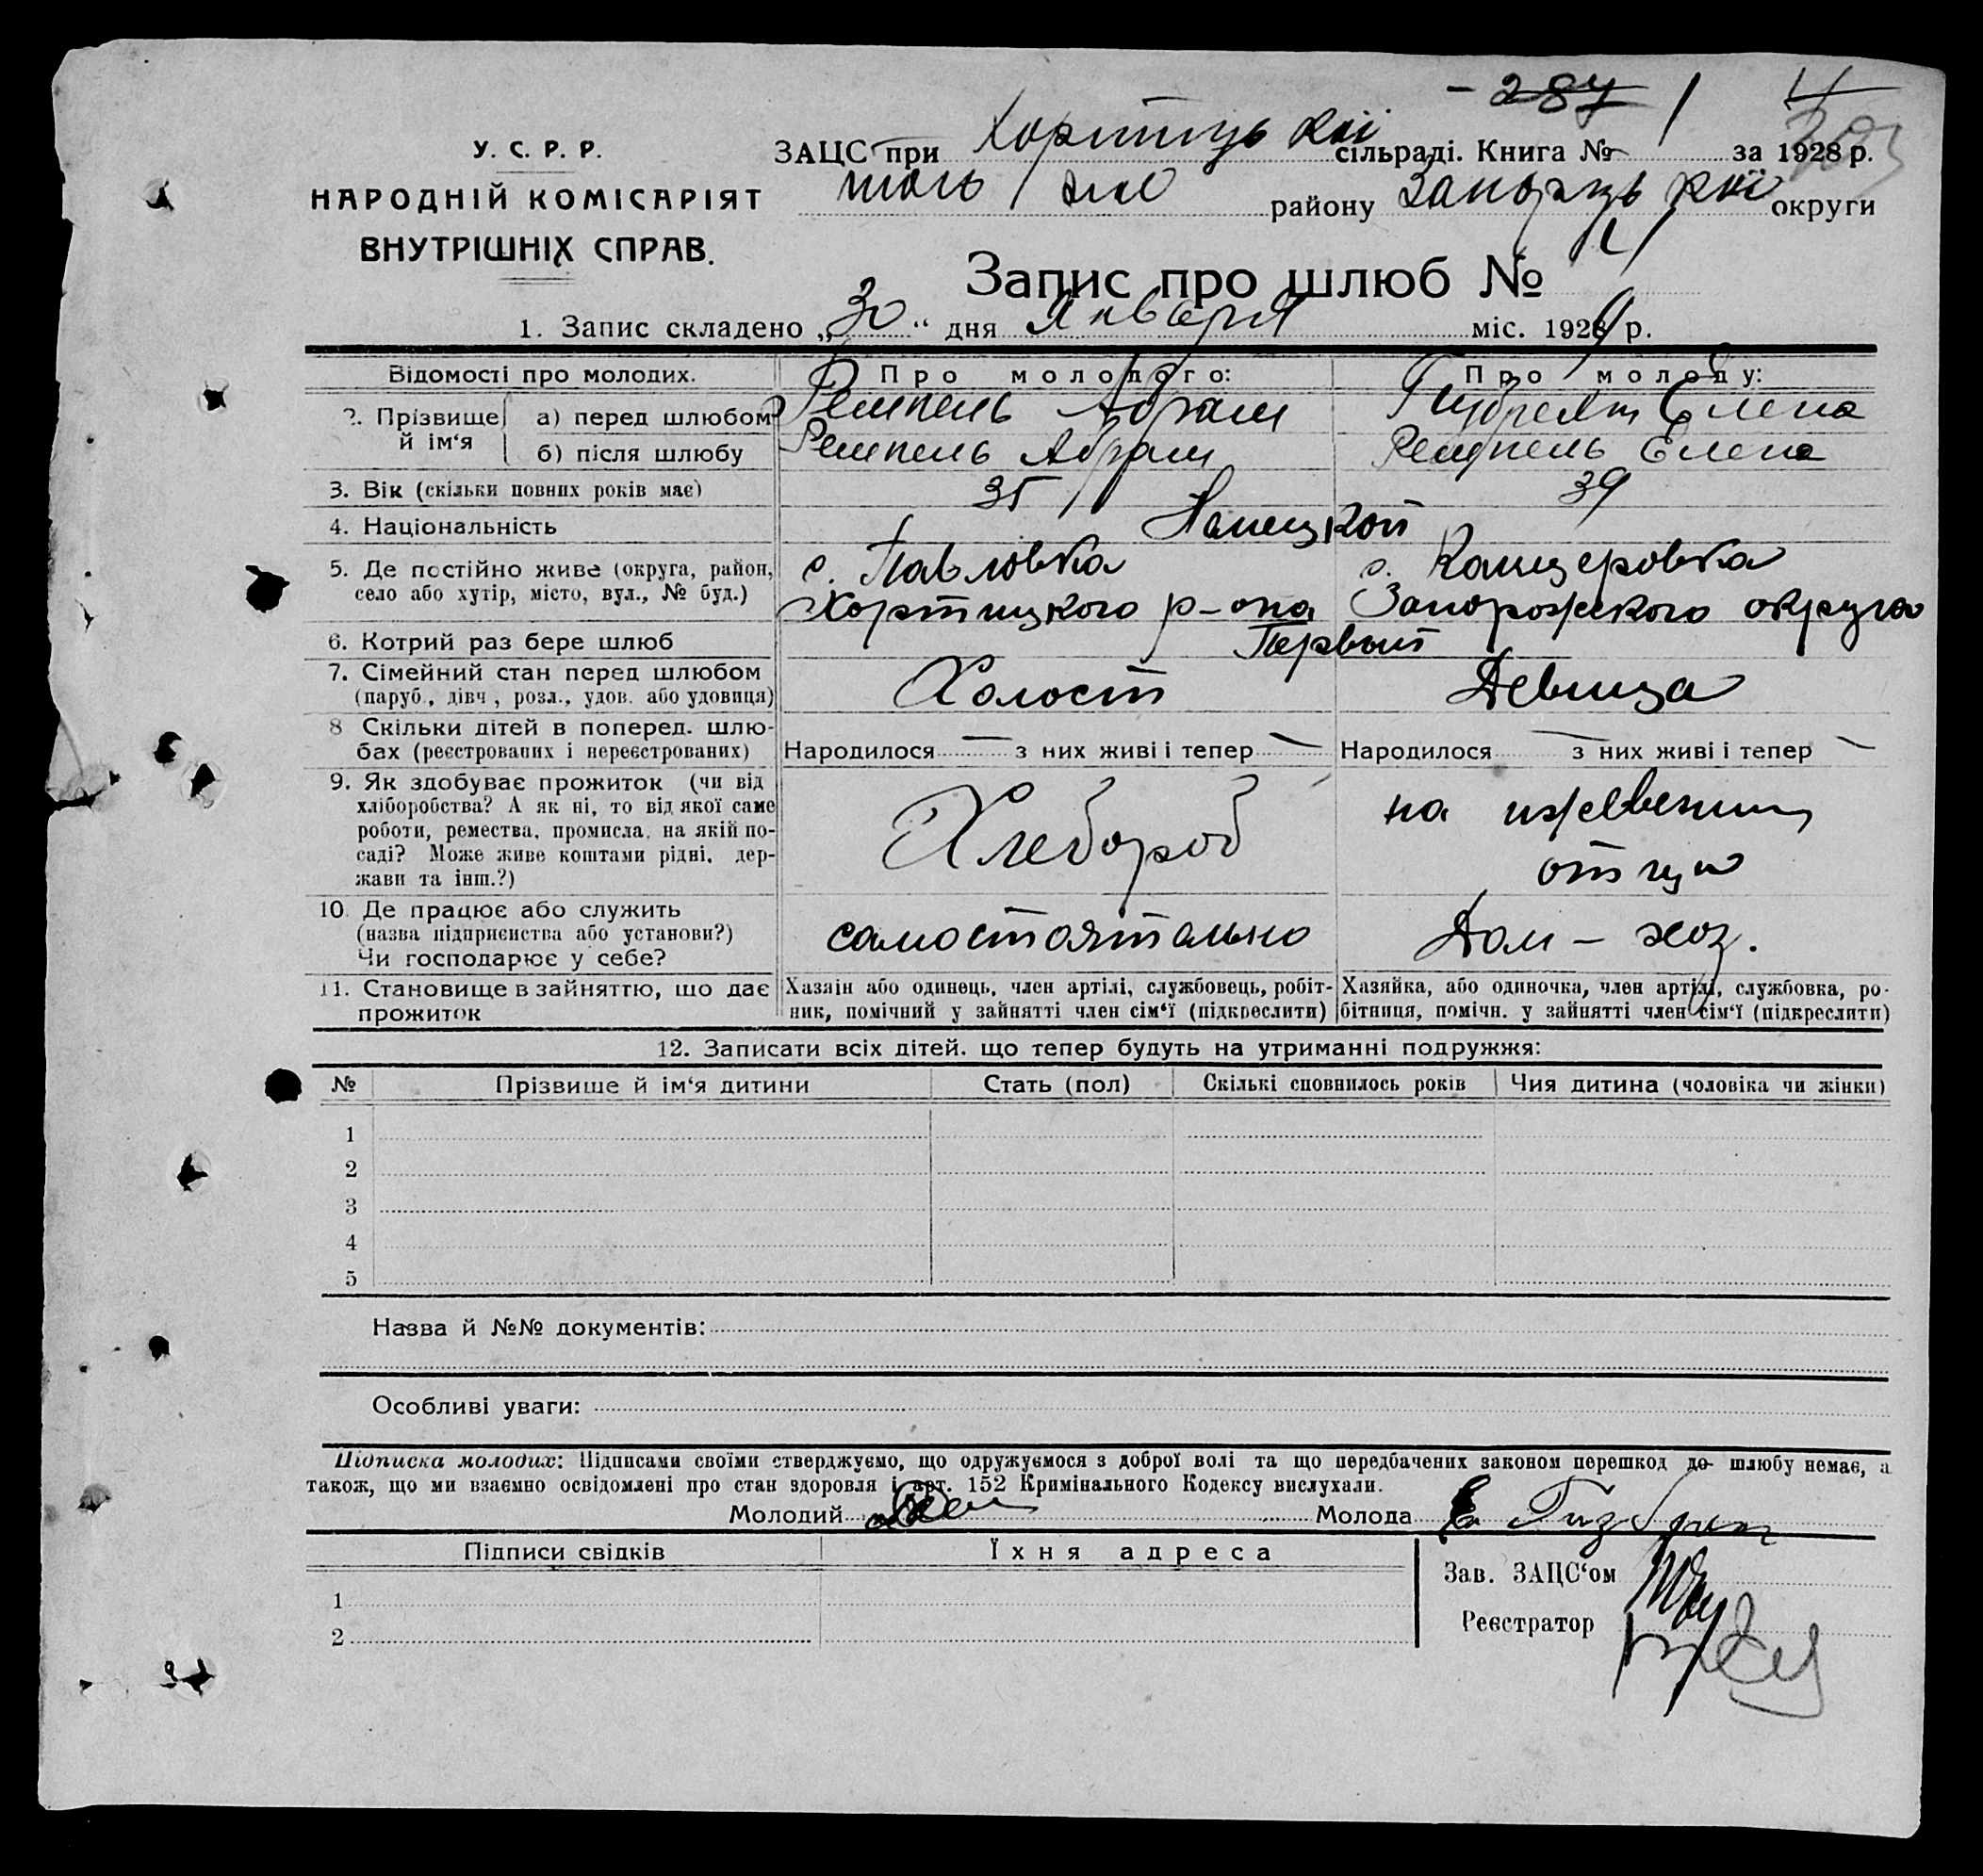 - 287 / 4
У. С. Р. Р.
НАРОДНІЙ КОМІСАРІЯТ
ВНУТРІШНІХ СПРАВ.
ЗАЦС при Хортицькій сільраді. Книга № 1 за 1928 р.
того / же району Запорізької округи
Запис про шлюб № 4
1. Запис складено „30“ дня Января міс. 1929 р.
Відомості про молодих. Про молодого: Про молоду:
2. Прізвище й ім‘я а) перед шлюбом Ремпель Абрам Елена
б) після шлюбу Ремпель Абрам Ремпель Елена
3. Вік (скільки повних років має) 35 39
4. Національність Немецкой
5. Де постійно живе (округа, район, с. Павловка с. Канцеровка
село або хутір, місто, вул., № буд.) Хортицкого р-она Запорожского округа
6. Котрий раз бере шлюб Первый
7. Сімейний стан перед шлюбом Холост Девица
(паруб., дівч, розл., удов. або удовиця)
8 Скільки дітей в поперед. шлю-
бах (реєстрованих і нереєстрованих) Народилося — з них живі і тепер — Народилося — з них живі і тепер —
9. Як здобуває прожиток (чи від
хліборобства? А як ні, то від якої саме
роботи, ремества, промисла, на якій по-
саді? Може живе коштами рідні, дер-
жави та інш.?)
Хлебороб
на иждевении
отца
10. Де працює або служить
(назва підприємства або установи?)
Чи господарює у себе?
самостоятельно Дом – хоз.
11. Становище в зайняттю, що дає Хазяін або одинець, член артілі, службовець, робіт- Хазяйка, або одиночка, член артілі, службовка, ро-
прожиток ник, помічний у зайнятті член сім‘ї (підкреслити) бітниця, помічн. у зайнятті член сім‘ї (підкреслити)
12. Записати всіх дітей. що тепер будуть на утриманні подружжя:
№ Прізвище й ім‘я дитини Стать (пол) Скількі сповнилось років Чия дитина (чоловіка чи жінки)
1
2
3
4
5
Назва й №№ документів:
Особливі уваги:
Підписка молодих: Підписами своїми стверджуємо, що одружуємося з доброї волі та що передбачених законом перешкод до шлюбу немає, а
також, що ми взаємно освідомлені про стан здоровля і арт. 152 Кримінального Кодексу вислухали.
Молодий Молода
Підписи свідків Їхня адреса
Зав. ЗАЦС‘ом
1
Реєстратор
2